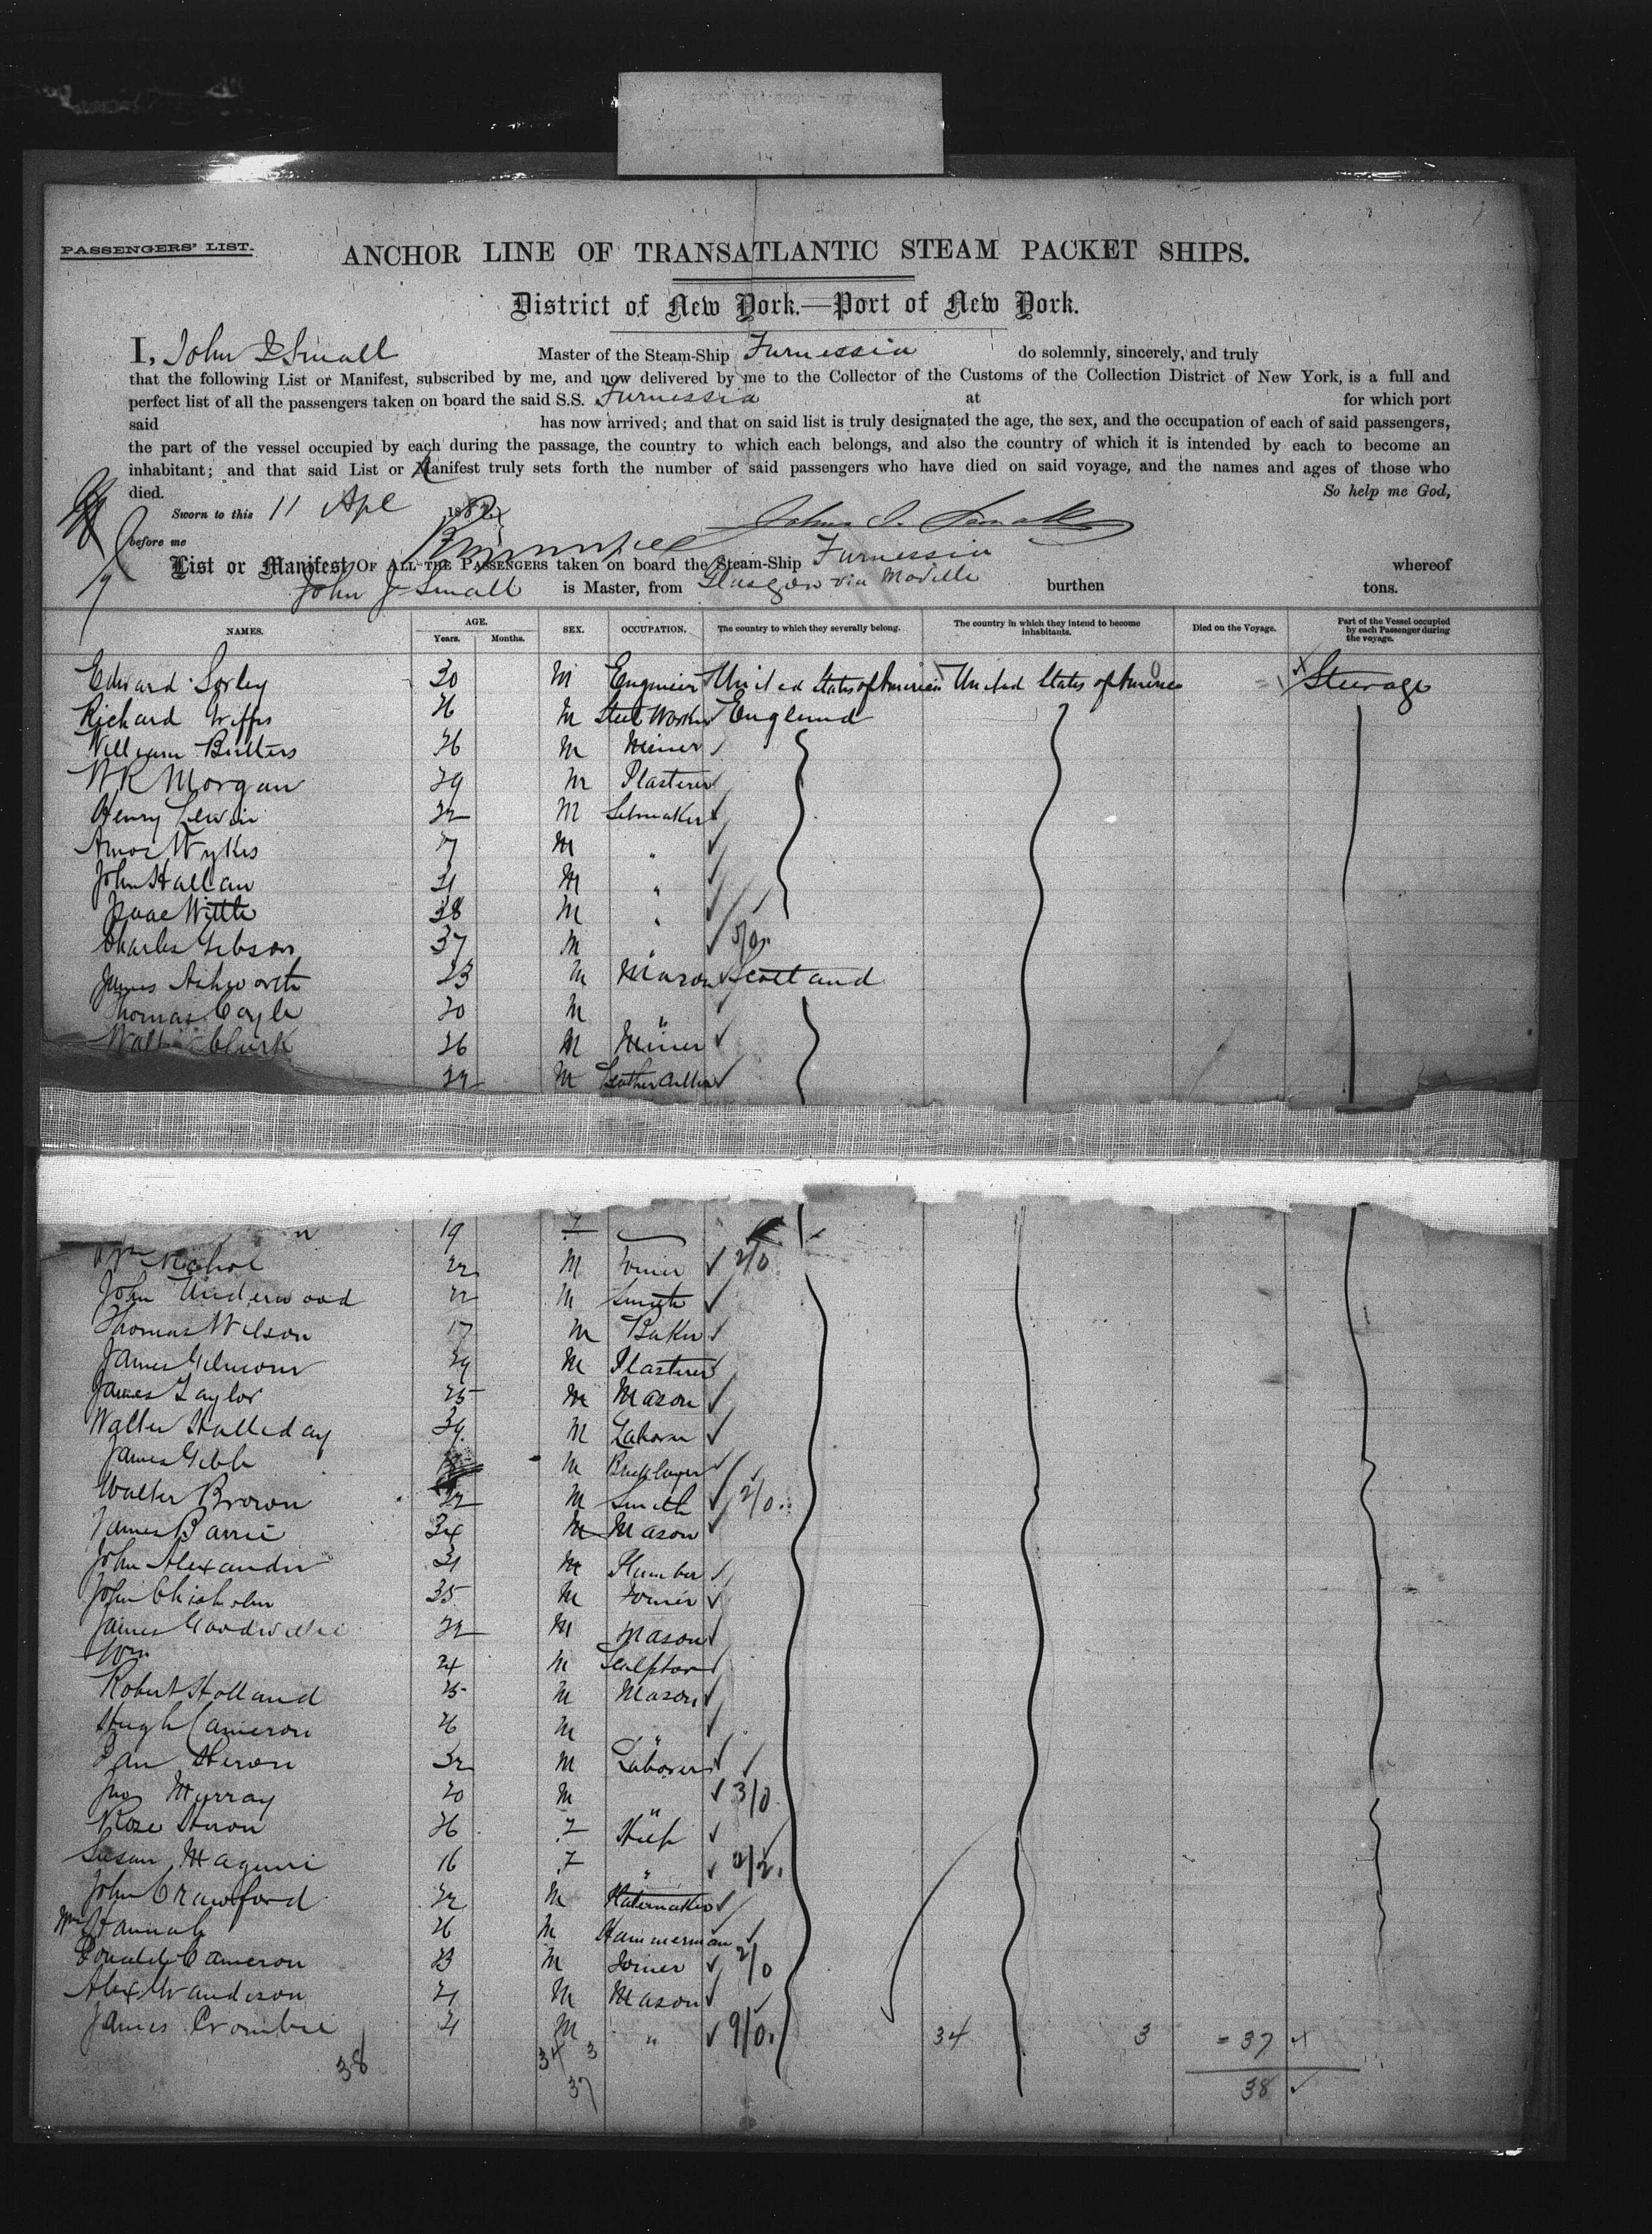 PASSENGERS' LIST.
ANCHOR LINE OF TRANSATLANTIC STEAM PACKET SHIPS.
District of New York.—Port of New York.
I, John Small Master of the Steam-Ship Furnessia do solemnly, sincerely, and truly
that the following List or Manifest, subscribed by me, and now delivered by me to the Collector of the Customs of the Collection District of New York, is a full and
perfect list of all the passengers taken on board the said S.S. Furnessia at for which port
said has now arrived; and that on said list is truly designated the age, the sex, and the occupation of each of said passengers,
the part of the vessel occupied by each during the passage, the country to which each belongs, and also the country of which it is intended by each to become an
inhabitant; and that said List or Manifest truly sets forth the number of said passengers who have died on said voyage, and the names and ages of those who
died. So help me God,
Sworn to this 11 Apl 188
before me
List or Manifest OF ALL THE PASSENGERS taken on board the Steam-Ship Furnessia whereof
John J Small is Master, from Glasgow via Moville burthen tons.
NAMES. AGE. Years. Months. SEX. OCCUPATION. The country to which they severally belong. The country in which they intend to become inhabitants. Died on the Voyage. Part of the Vessel occupied by each Passenger during the voyage.
Edward Sorley 30 M Engineer United States of America United States of America Steerage
Richard 26 M Steel Worker England
William Butters 26 M Miner
W R Morgan 29 M Plasterer
Henry Lewin 22 M
Amos Wykes M "
John Hallan 21 M "
Isaac 38 M "
Charles Gibson 37 M " 5/0
James Ashworth 23 M Mason Scotland
Thomas Coyle 20 M "
Walter Clark 26 M Miner
22 M
19 F
Wm Nichol 22 M Joiner 2/0
John Underwood 22 M Smith
Thomas Wilson 17 M Baker
James Gilmour 29 M Plasterer
James Taylor 25 M Mason
Walter Halliday 39 M Laborer
James Gibb M Bricklayer
Walter Brown 22 M Smith 2/0
James Barrie 34 M Mason
John Alexander 21 M Plumber
John Chisholm 35 M Joiner
James Goodwillie 22 M Mason
Wm 24 M Sculptor
Robert Holland 25 M Mason
Hugh Cameron 26 M "
Dan Heron 32 M Laborer
Jno Murray 20 M " 3/0
Rose Heron 26 F Help
Susan Maguire 16 F " 2/2
John Crawford 32 M
Wm Hannah 26 M Hammerman
Donald Cameron 23 M Joiner 2/0
Alex 21 M Mason
James Crombie 21 M " 9/0 34 3 = 37
38 34 3
37 38